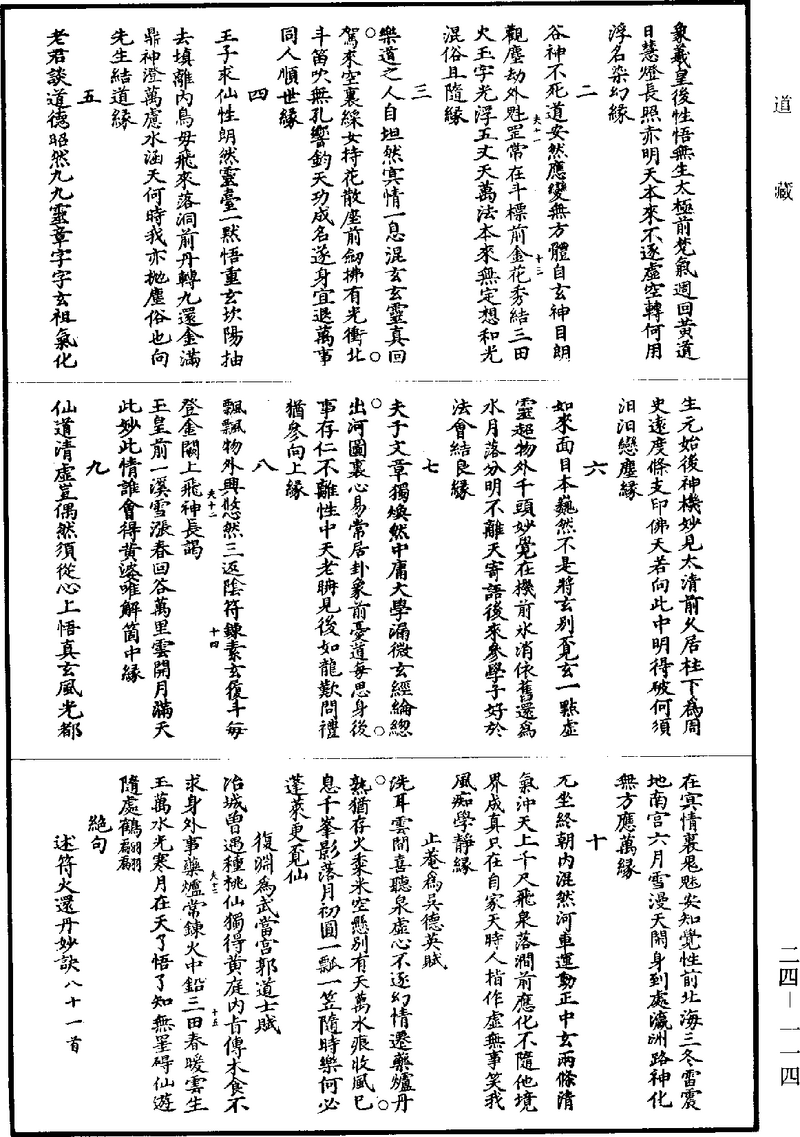 道藏
象羲皇後性悟無生太極前梵氣週回黃道
日慧燈長照亦明天本來不逐虛空轉何用
浮名染幻緣
二
谷神不死道安然應變無方體自玄神目朗
觀塵劫外魁罡常在斗標前金花秀結三田
火玉字光浮五丈天萬法本來無定想和光
混俗且隨緣
三
樂道之人自坦然冥情一息混玄玄靈真回
駕來空裏綵女持花散座前劒拂有光衝北
斗笛吹無孔響鈞天功成名遂身宜退萬事
同人順世緣
四
王子求仙性朗然靈臺一點悟重玄坎陽抽
去填離內烏母飛來落洞前丹轉九還金滿
鼎神澄萬慮水涵天何時我亦抛塵俗也向
先生結道緣
五
老君談道德昭然九九靈章字字玄祖氣化
夫十一
十三
生元始後神機妙見太清前久居柱下為周
史遠度條支印佛天若向此中明得破何須
汩汩戀塵緣
六
如來面目本巍然不是將玄別覓玄一點虛
靈超物外千頭妙覺在機前氷消依舊還為
水月落分明不離天寄語後來參學子好於
法會結良緣
七
夫子文章獨煥然中庸大學漏微玄經綸緫
出河圖裏心易常居卦象前憂道每思身後
事存仁不離性中天老聃見後如龍歎問禮
猶參向上緣
八
飄飄物外興悠然三返陰符鍊素玄復斗每
登金闕上飛神長謁
玉皇前一溪雪漲春回谷萬里雲開月滿天
此妙此情誰會得黃婆唯解箇中緣
九
仙道清虛豈偶然須從心上悟真玄風光都
夫十二
十四
在冥情裏鬼魅安知覺性前北海三冬雷震
地南宮六月雪漫天閑身到處瀛洲路神化
無方應萬緣
十
兀坐終朝內混然河車運動正中玄兩條清
氣沖天上千尺飛泉落澗前應化不隨他境
界成真只在自家天時人指作虛無事笑我
風痴學靜緣
止菴為吳德英賦
洗耳雲間喜聽泉虛心不逐幻情遷藥爐丹
熟猶存火黍米空懸別有天萬水痕收風已
息千峯影落月初圓一瓢一笠隨時樂何必
蓬萊更覓仙
復淵為武當宮郭道士賦
冶城曾遇種桃仙獨得黃庭內旨傳木食不
求身外事藥爐常鍊火中鉛三田春暖雲生
玉萬水光寒月在天了悟了知無罣碍仙遊
隨處鶴翩翩
絕句
述符火還丹妙訣八十一首
夫十二
十五
二四—一一四